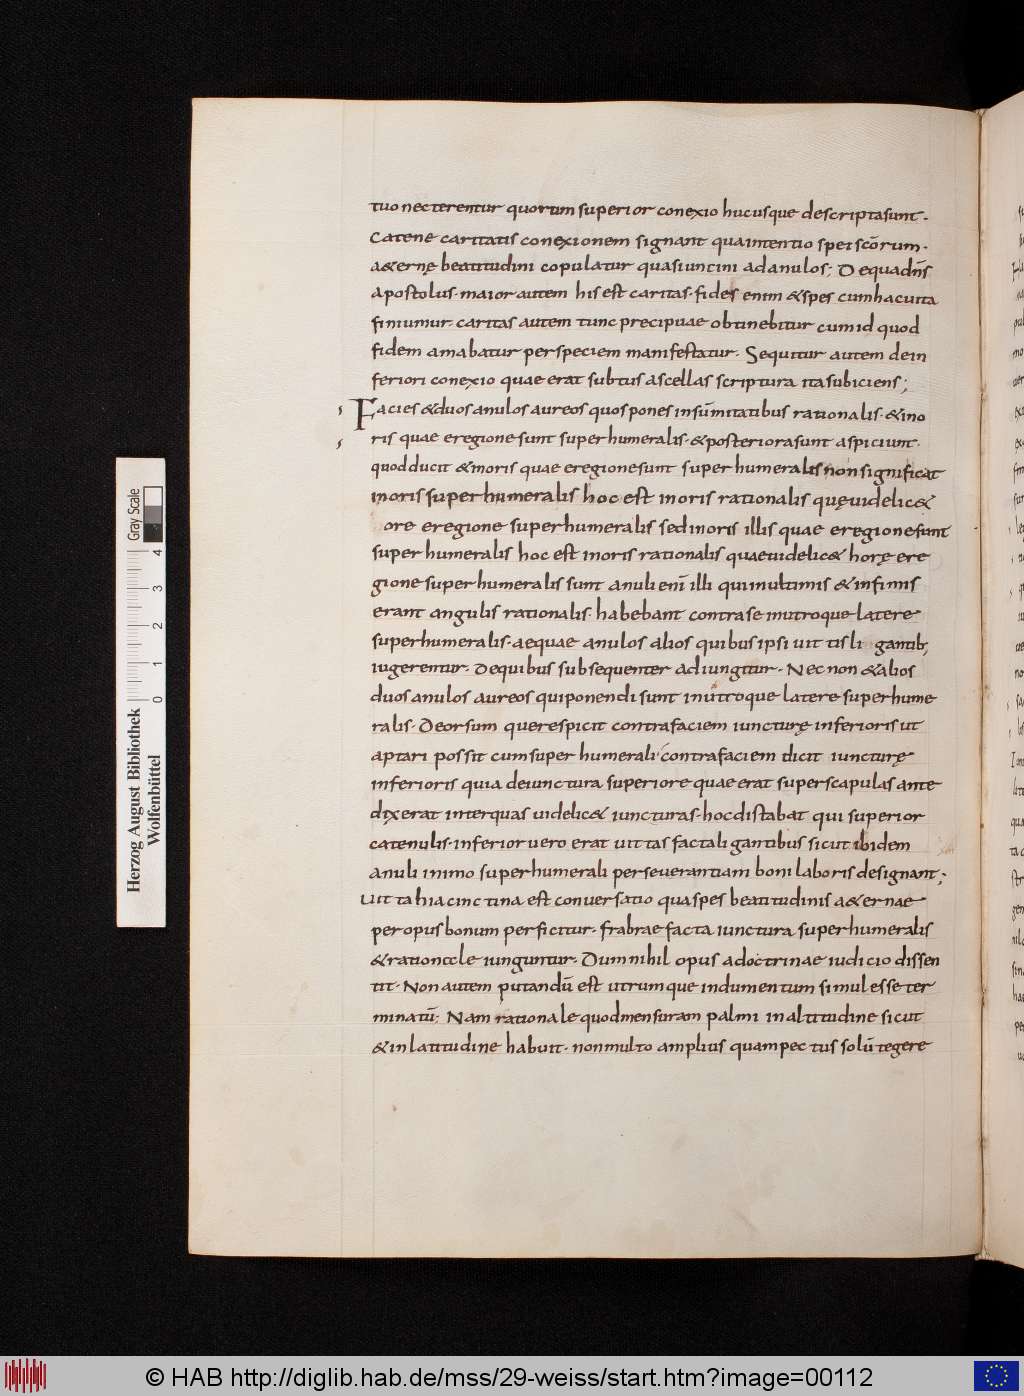 tuo necterentur quorum superior conexio hucusque descripta sunt.
Catene caritatis conexionem signant qua intentio spei scōrum.
a&ernę beatitudini copulatur quasi uncini ad anulos; De quad n̄s
apostolus. maior autem his est caritas. fides enim & spes cum hac uita
finiumur. caritas autem tunc precipuae obtinebitur cum id quod
fidem amabatur per speciem manifestatur. Sequitur autem de in
feriori conexio quae erat subtus ascellas scriptura ita subiciens;
Facies & duos anulos aureos quos pones in sūmitatibus rationalis. & in o
ris quae e regione sunt superhumeralis. & posteriora sunt aspiciunt.
quod ducit & in oris quae e regione sunt superhumeralis non significat
in oris superhumeralis hoc est in oris rationalis quę uidelic&
ore e regione superhumeralis sed in oris illis quae e regione sunt
superhumeralis hoc est in oris rationalis quae uidelic& horę e re
gione superhumeralis sunt anuli enī illi qui in ultimis & infimis
erant angulis rationalis. habebant contra se in utroque latere
superhumeralis. aequae anulos alios quibus ipsi uittis ligantib;
iugerentur. De quibus subsequenter adiungitur. Nec non & alios
duos anulos aureos qui ponendi sunt in utroque latere superhume
ralis. Deorsum que respicit contra faciem iuncturę inferioris ut
aptari possit cum superhumerali contra faciem dicit iuncturę
inferioris quia de iunctura superiore quae erat super scapulas ante
dixerat inter quas uidelic& iuncturas. hoc distabat qui superior
catenulis. inferior uero erat uittas facta ligantibus sicut ibidem
anuli in imo superhumerali perseuerantiam boni laboris designant;
Uitta hiacinctina est conuersatio qua spes beatitudinis a&ernae
per opus bonum perficitur. frabrae facta iunctura superhumeralis
& rationcle iunguntur. Dum nihil opus a doctrinae iudicio dissen
tit. Non autem putandū est utrumque indumentum simul esse ter
minatū; Nam rationale quod mensuram palmi in altitudine sicut
& in latitudine habuit. non multo amplius quam pectus solū tegere
Gray Scale
4 3 2 1 0
Herzog August Bibliothek
Wolfenbüttel
© HAB http://diglib.hab.de/mss/29-weiss/start.htm?image=00112